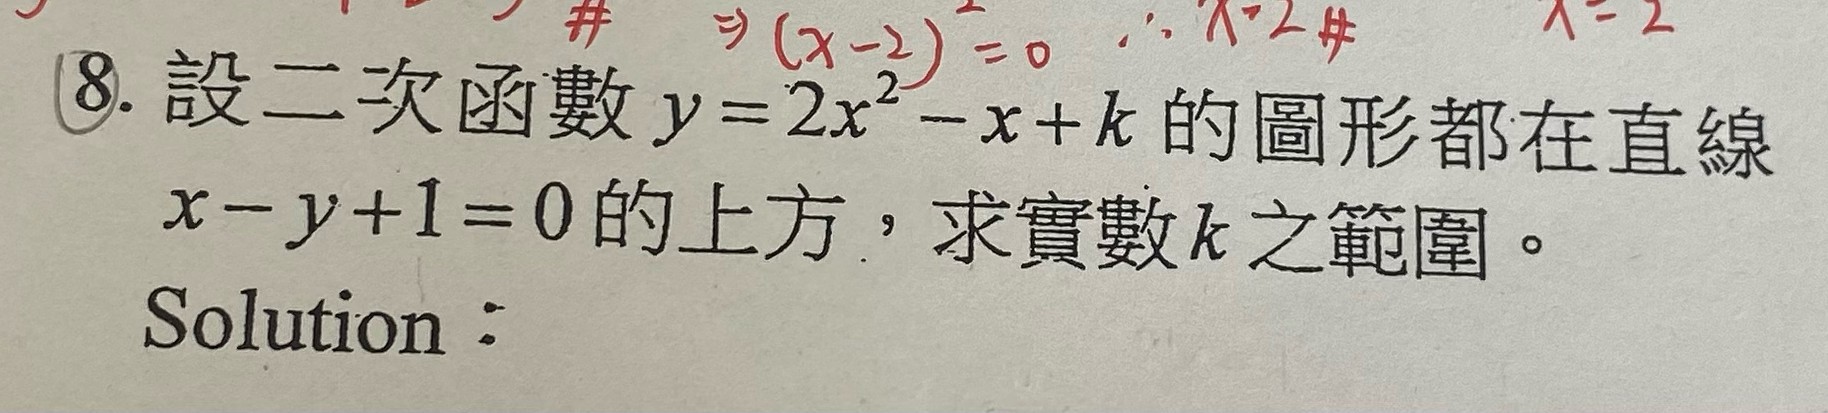 # ⇒ (x-2)² = 0 ∴ x=2 # x=2
8. 設二次函數 y=2x²-x+k 的圖形都在直線
x-y+1=0 的上方，求實數k之範圍。
Solution：